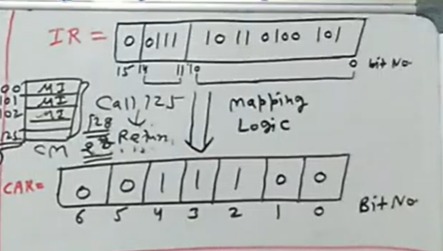 IR = 0 0111 10 11 0100 101
15 14 11 10 0 bit No
00 MI
101 MI
102 MI
125
CM
Call 125
Mapping
Logic
CAR= 0 0 1 1 1 0 0
6 5 4 3 2 1 0 Bit No